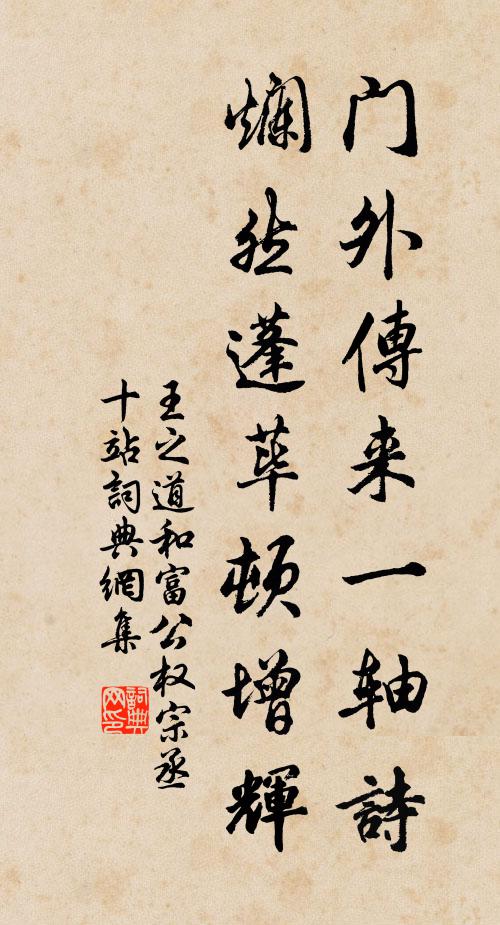 门外傳来一轴詩
爛然蓬荜顿增輝
王之道和富公权宗丞
十站詞典網集
詞典网印